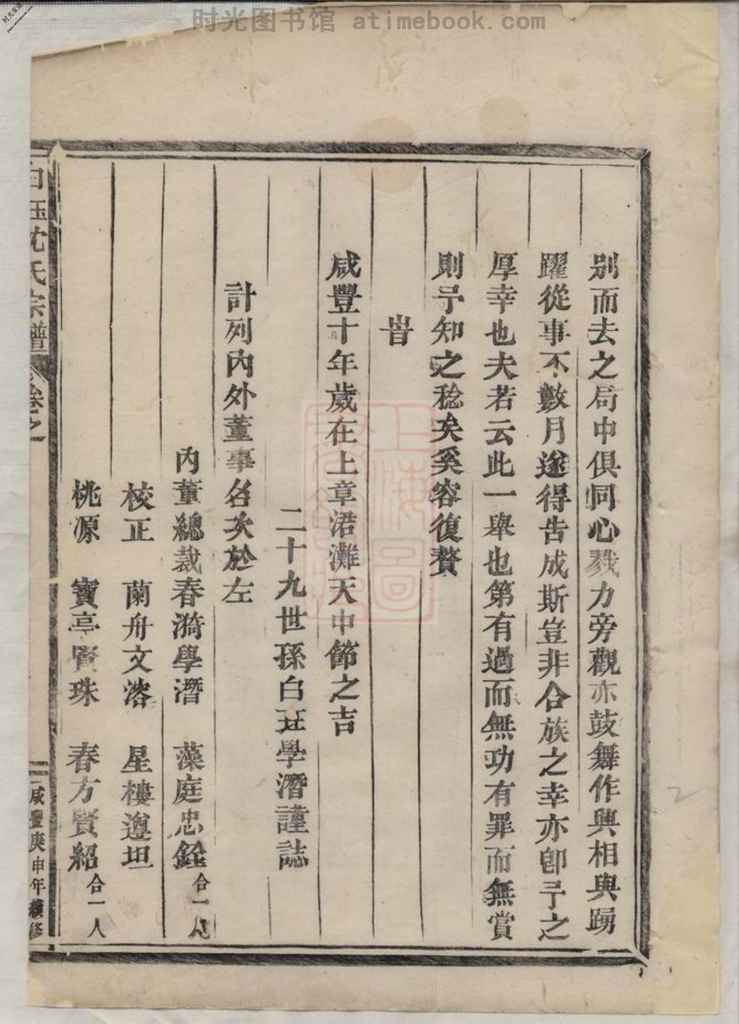 时光图书馆 atimebook.com
別而去之局中俱同心戮力旁觀亦鼓舞作興相與踴
躍從事不數月遂得告成斯豈非合族之幸亦卽予之
厚幸也夫若云此一舉也第有過而無功有罪而無賞
則予知之稔矣奚容復贅
旹
咸豐十年歲在上章涒灘天中節之吉
二十九世孫白玨學潛謹誌
計列內外董事名次於左
內董總裁春漪學潛 藻庭忠銓合一人
校正 蘭舟文溶 星樓遵坦
桃源 寶亭賢珠 春方賢紹合一人
白玨沈氏宗譜 卷之
咸豐庚申年續修